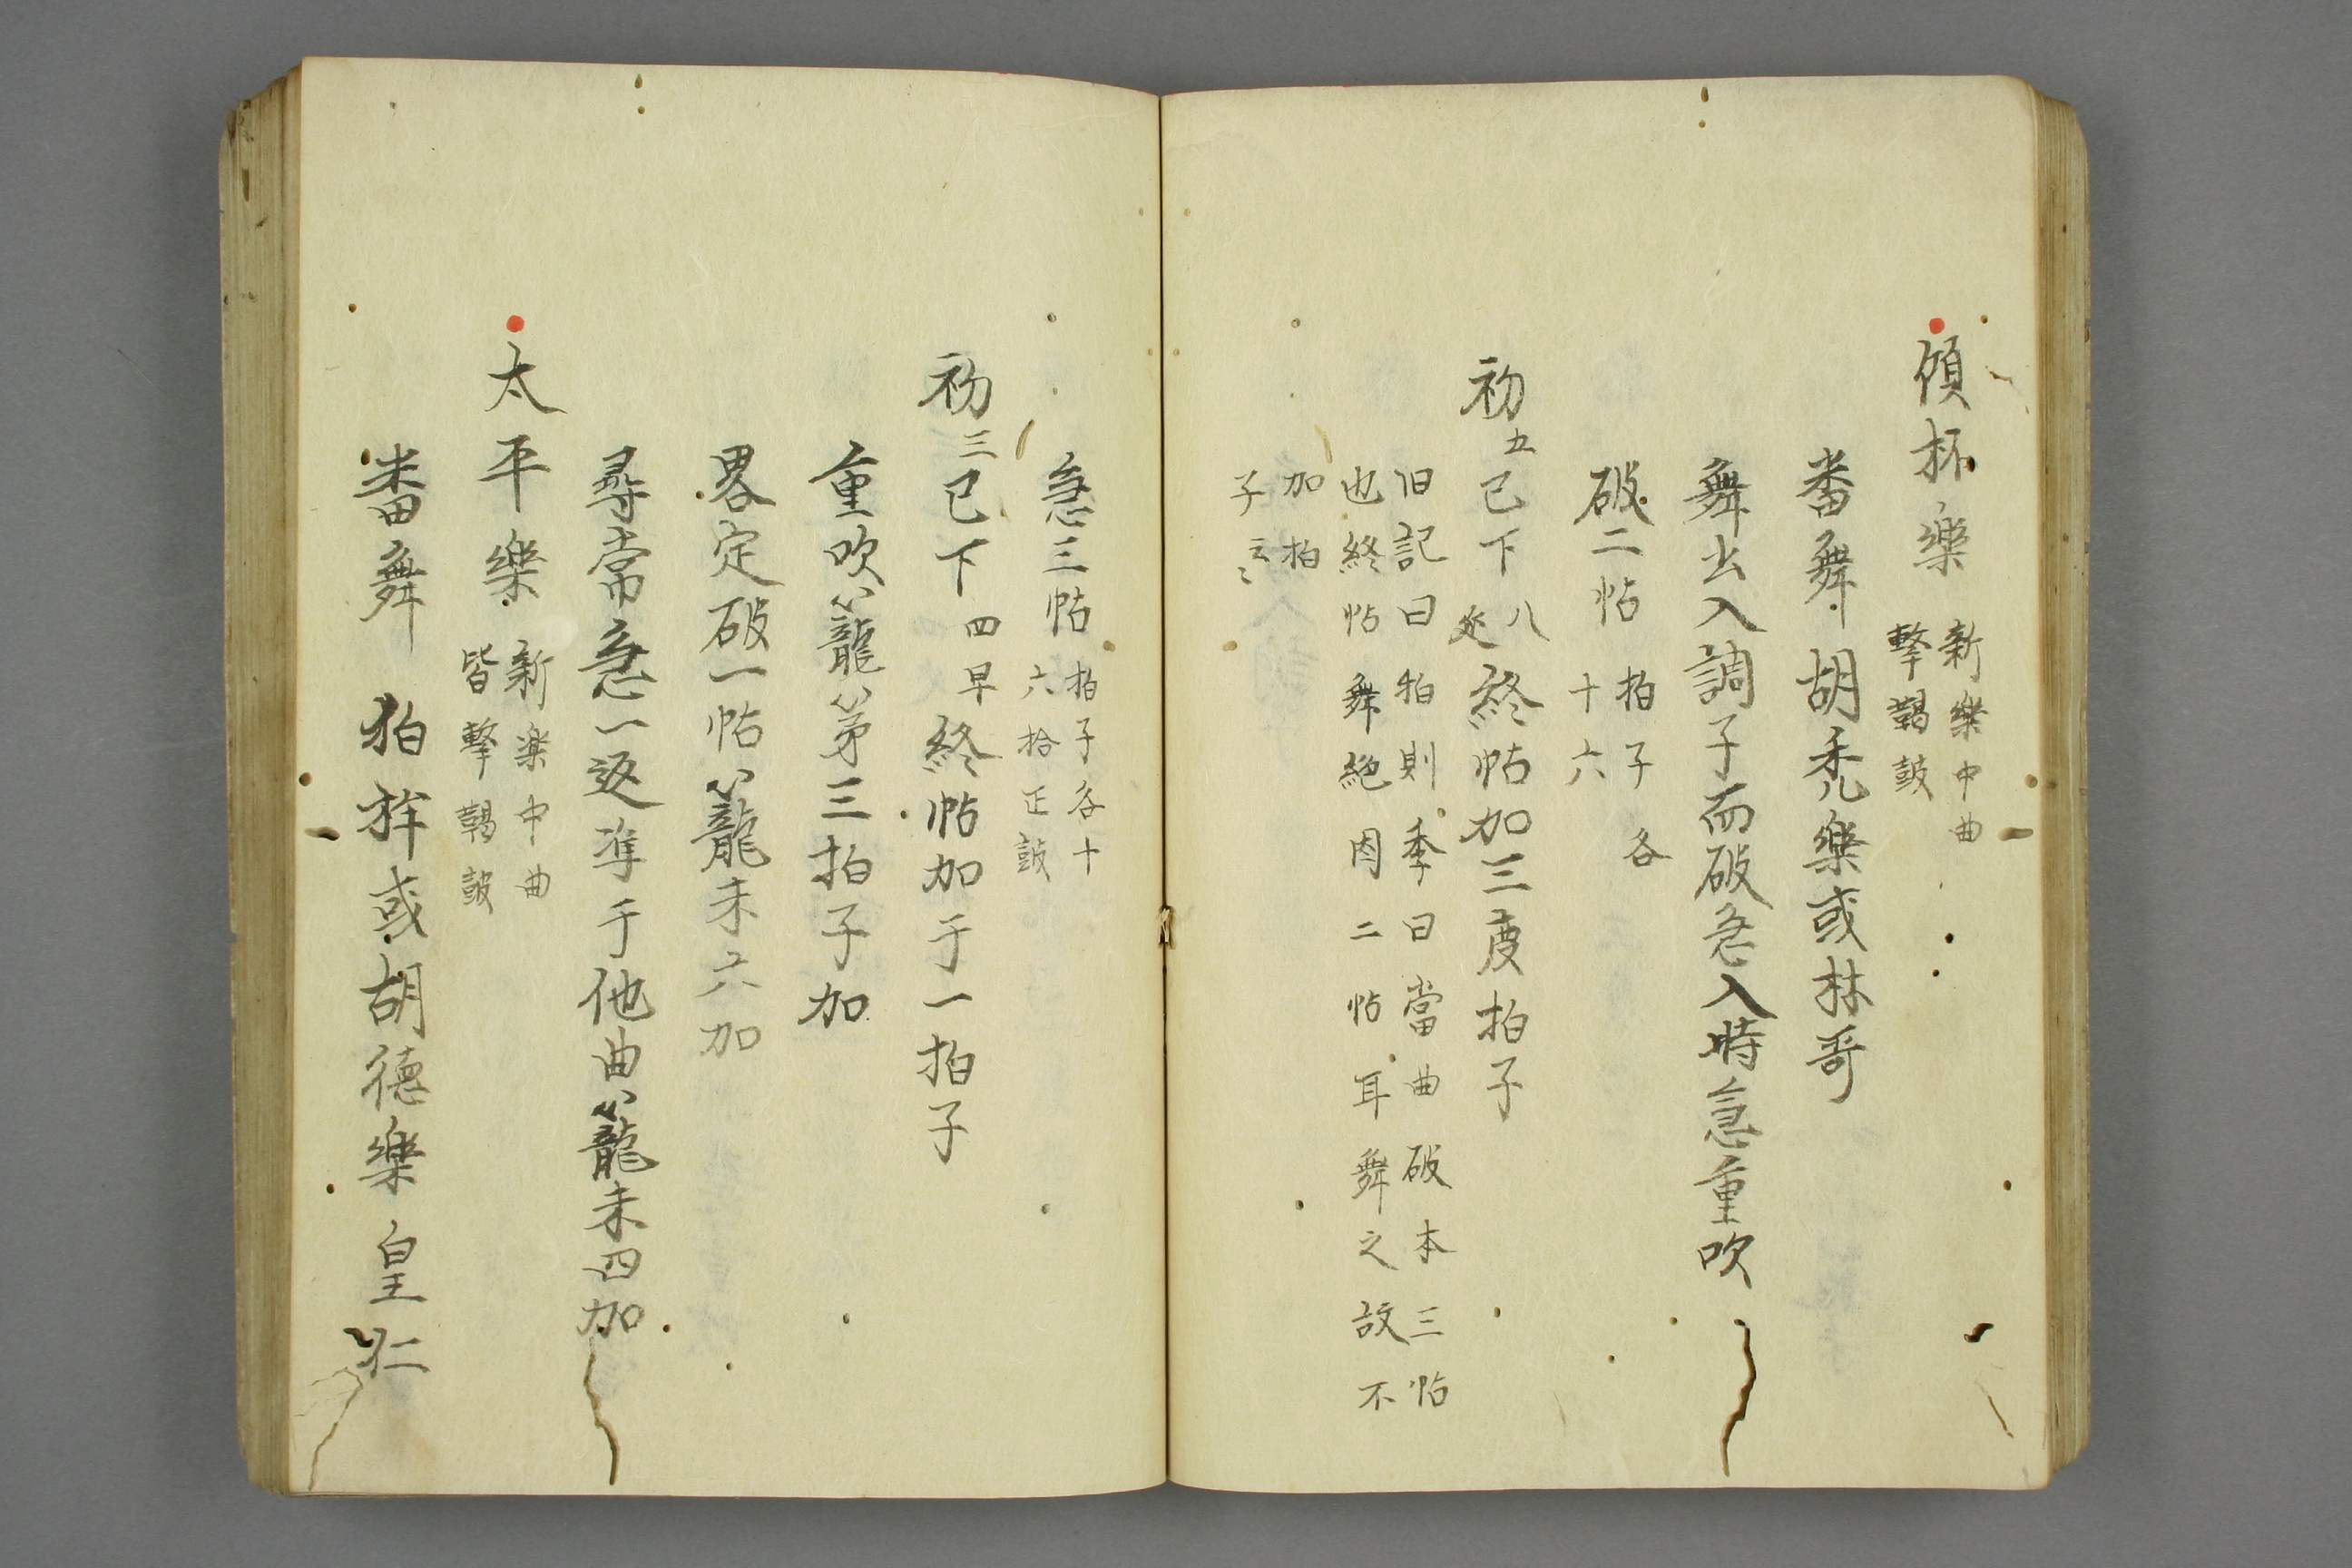 傾杯樂 新樂中曲
撃鞨鼓
番舞 胡禿樂或林哥
舞出入調子而破急入時急重吹
破二帖 拍子各
十六
初五已下 八
処 終帖加三度拍子
旧記曰拍則季曰當曲破本三帖
也終帖舞絶因二帖耳舞之故不
加拍
子云〻
急三帖 拍子各十
六拾正鼓
初三已下 四早 終帖加于一拍子
重吹籠第三拍子加
畧定破一帖籠末六加
尋常急一返準于他曲籠末四加
太平樂 新楽中曲
皆撃鞨鼓
番舞 狛桙或胡德樂皇仁